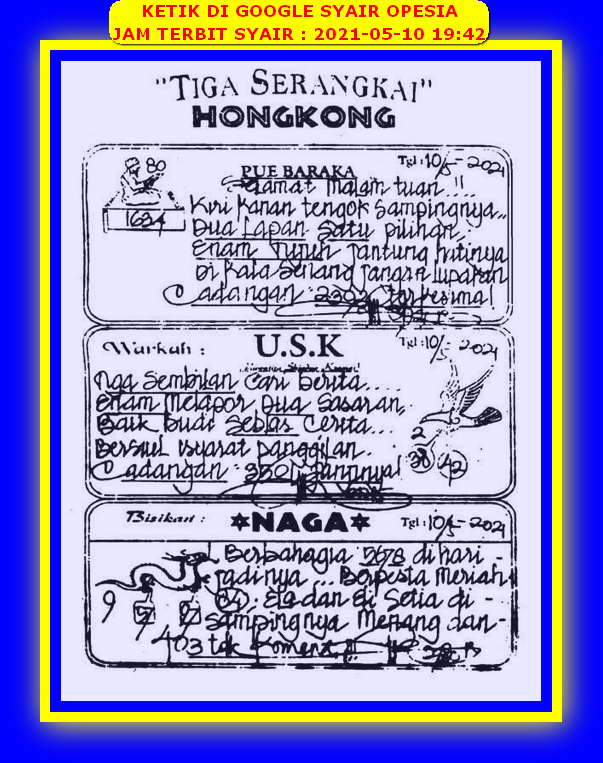 KETIK DI GOOGLE SYAIR OPESIA
JAM TERBIT SYAIR : 2021-05-10 19:42
"TIGA SERANGKAI"
HONGKONG
80
1634
PUE BARAKA
Tgl : 10/5-2021
Slamat malam tuan..!!
Kiri kanan tengok sampingnya..
Dua Lapan Satu pilihan,
Enam Tujuh jantung hatinya
Di kala senang jangan lupakan
Cadangan 2302 terkesima!
Warkah :
U.S.K
Tgl : 10/5-2021
Tiga Sembilan cari berita....
Enam Melapor Dua Sasaran,
Baik budi Seblas cerita...
Bersiul isyarat panggilan.
Cadangan 3301 Jantinya!
2
38
42
Bisikan :
NAGA
Tgl : 10/5-2021
Berbahagia 5678 di hari -
jadinya... Berpesta meriah
Ela dan Edi Setia di -
Sampingnya Menang dan -
403 tak Koment.!!
9
5
7